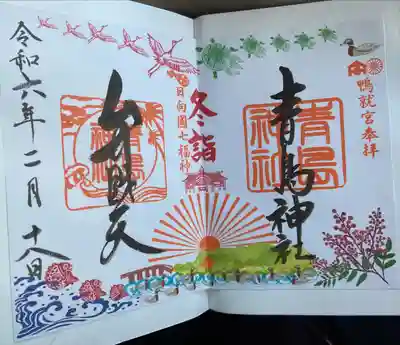 鴨就宮参拝
青島神社
青島神社
冬詣
日向國七福神
弁財天
青島神社
令和六年二月十八日